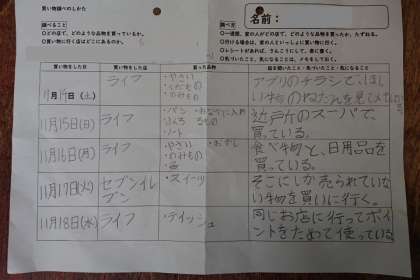 買い物調べのしかた
調べること
◎どの店で、どのような品物を買っているか。
◎買い物に行く店はどこにあるのか。
名前:
調べ方
◎一週間、家の人がどの店で、どのような品物を買ったか、たずねる。
◎レシートがあれば、さんこうにして、書く。
◎気づいたこと、気になることは、メモをしておく。
買い物をした日
買い物をした店
買った品物
話を聞いたこと・気づいたこと・気になったこと
月 日(土)
ライフ
・やさい
・くだもの
・のみもの
アプリのチラシで、ほし
い物のねだんを見て
11月15日(日)
ライフ
・パン
・ノート
近戸所のスーパで、
買っている。
11月16日(月)
ライフ
・やさい ・おかし
・のみもの
食べ物と、日用品を
買っている。
11月17日(火)
セブンイレ
ブン
・スイーツ
そこにしか売られていな
い物を買いに行く。
11月18日(水)
ライフ
・ティッシュ
同じお店に行ってポイ
ントをためて使っている。